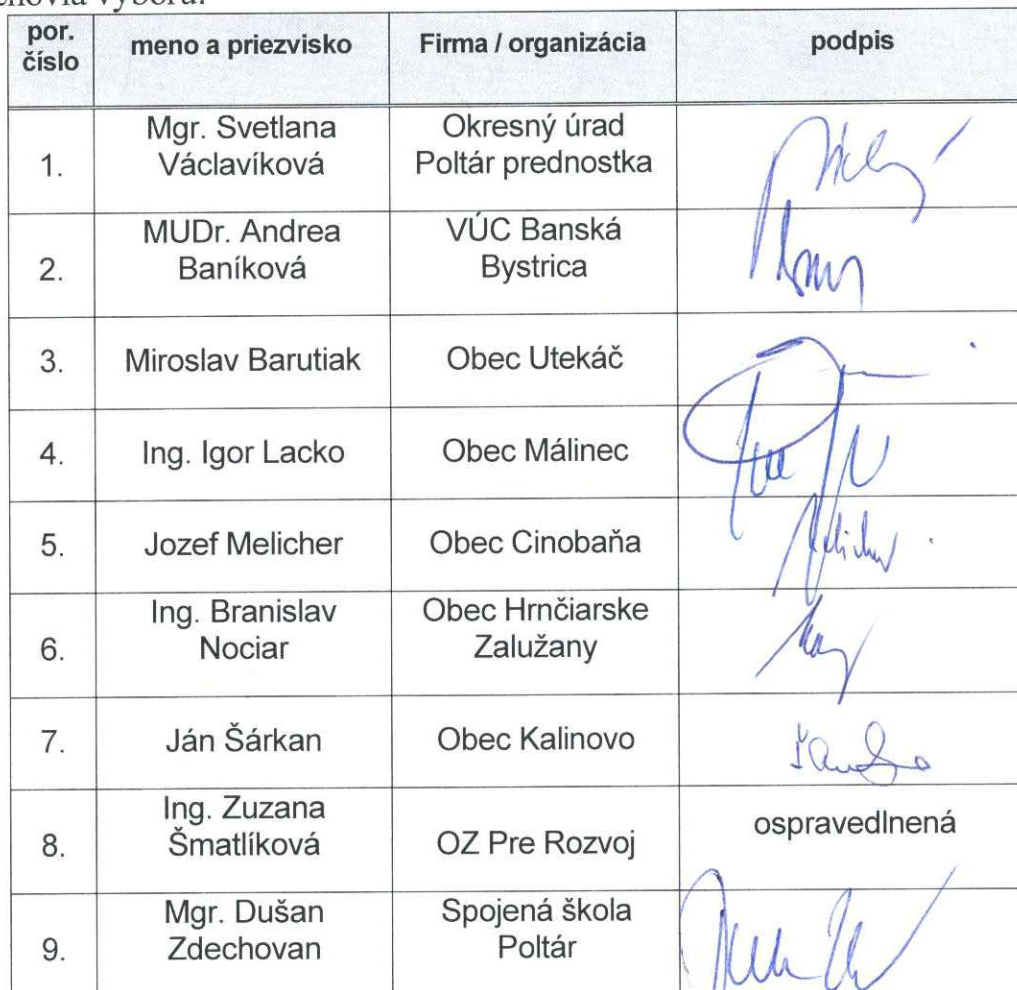 výboru:
por. číslo meno a priezvisko Firma / organizácia podpis
1. Mgr. Svetlana Václavíková Okresný úrad Poltár prednostka
2. MUDr. Andrea Baníková VÚC Banská Bystrica
3. Miroslav Barutiak Obec Utekáč
4. Ing. Igor Lacko Obec Málinec
5. Jozef Melicher Obec Cinobaňa Melicher
6. Ing. Branislav Nociar Obec Hrnčiarske Zalužany
7. Ján Šárkan Obec Kalinovo
8. Ing. Zuzana Šmatlíková OZ Pre Rozvoj ospravedlnená
9. Mgr. Dušan Zdechovan Spojená škola Poltár